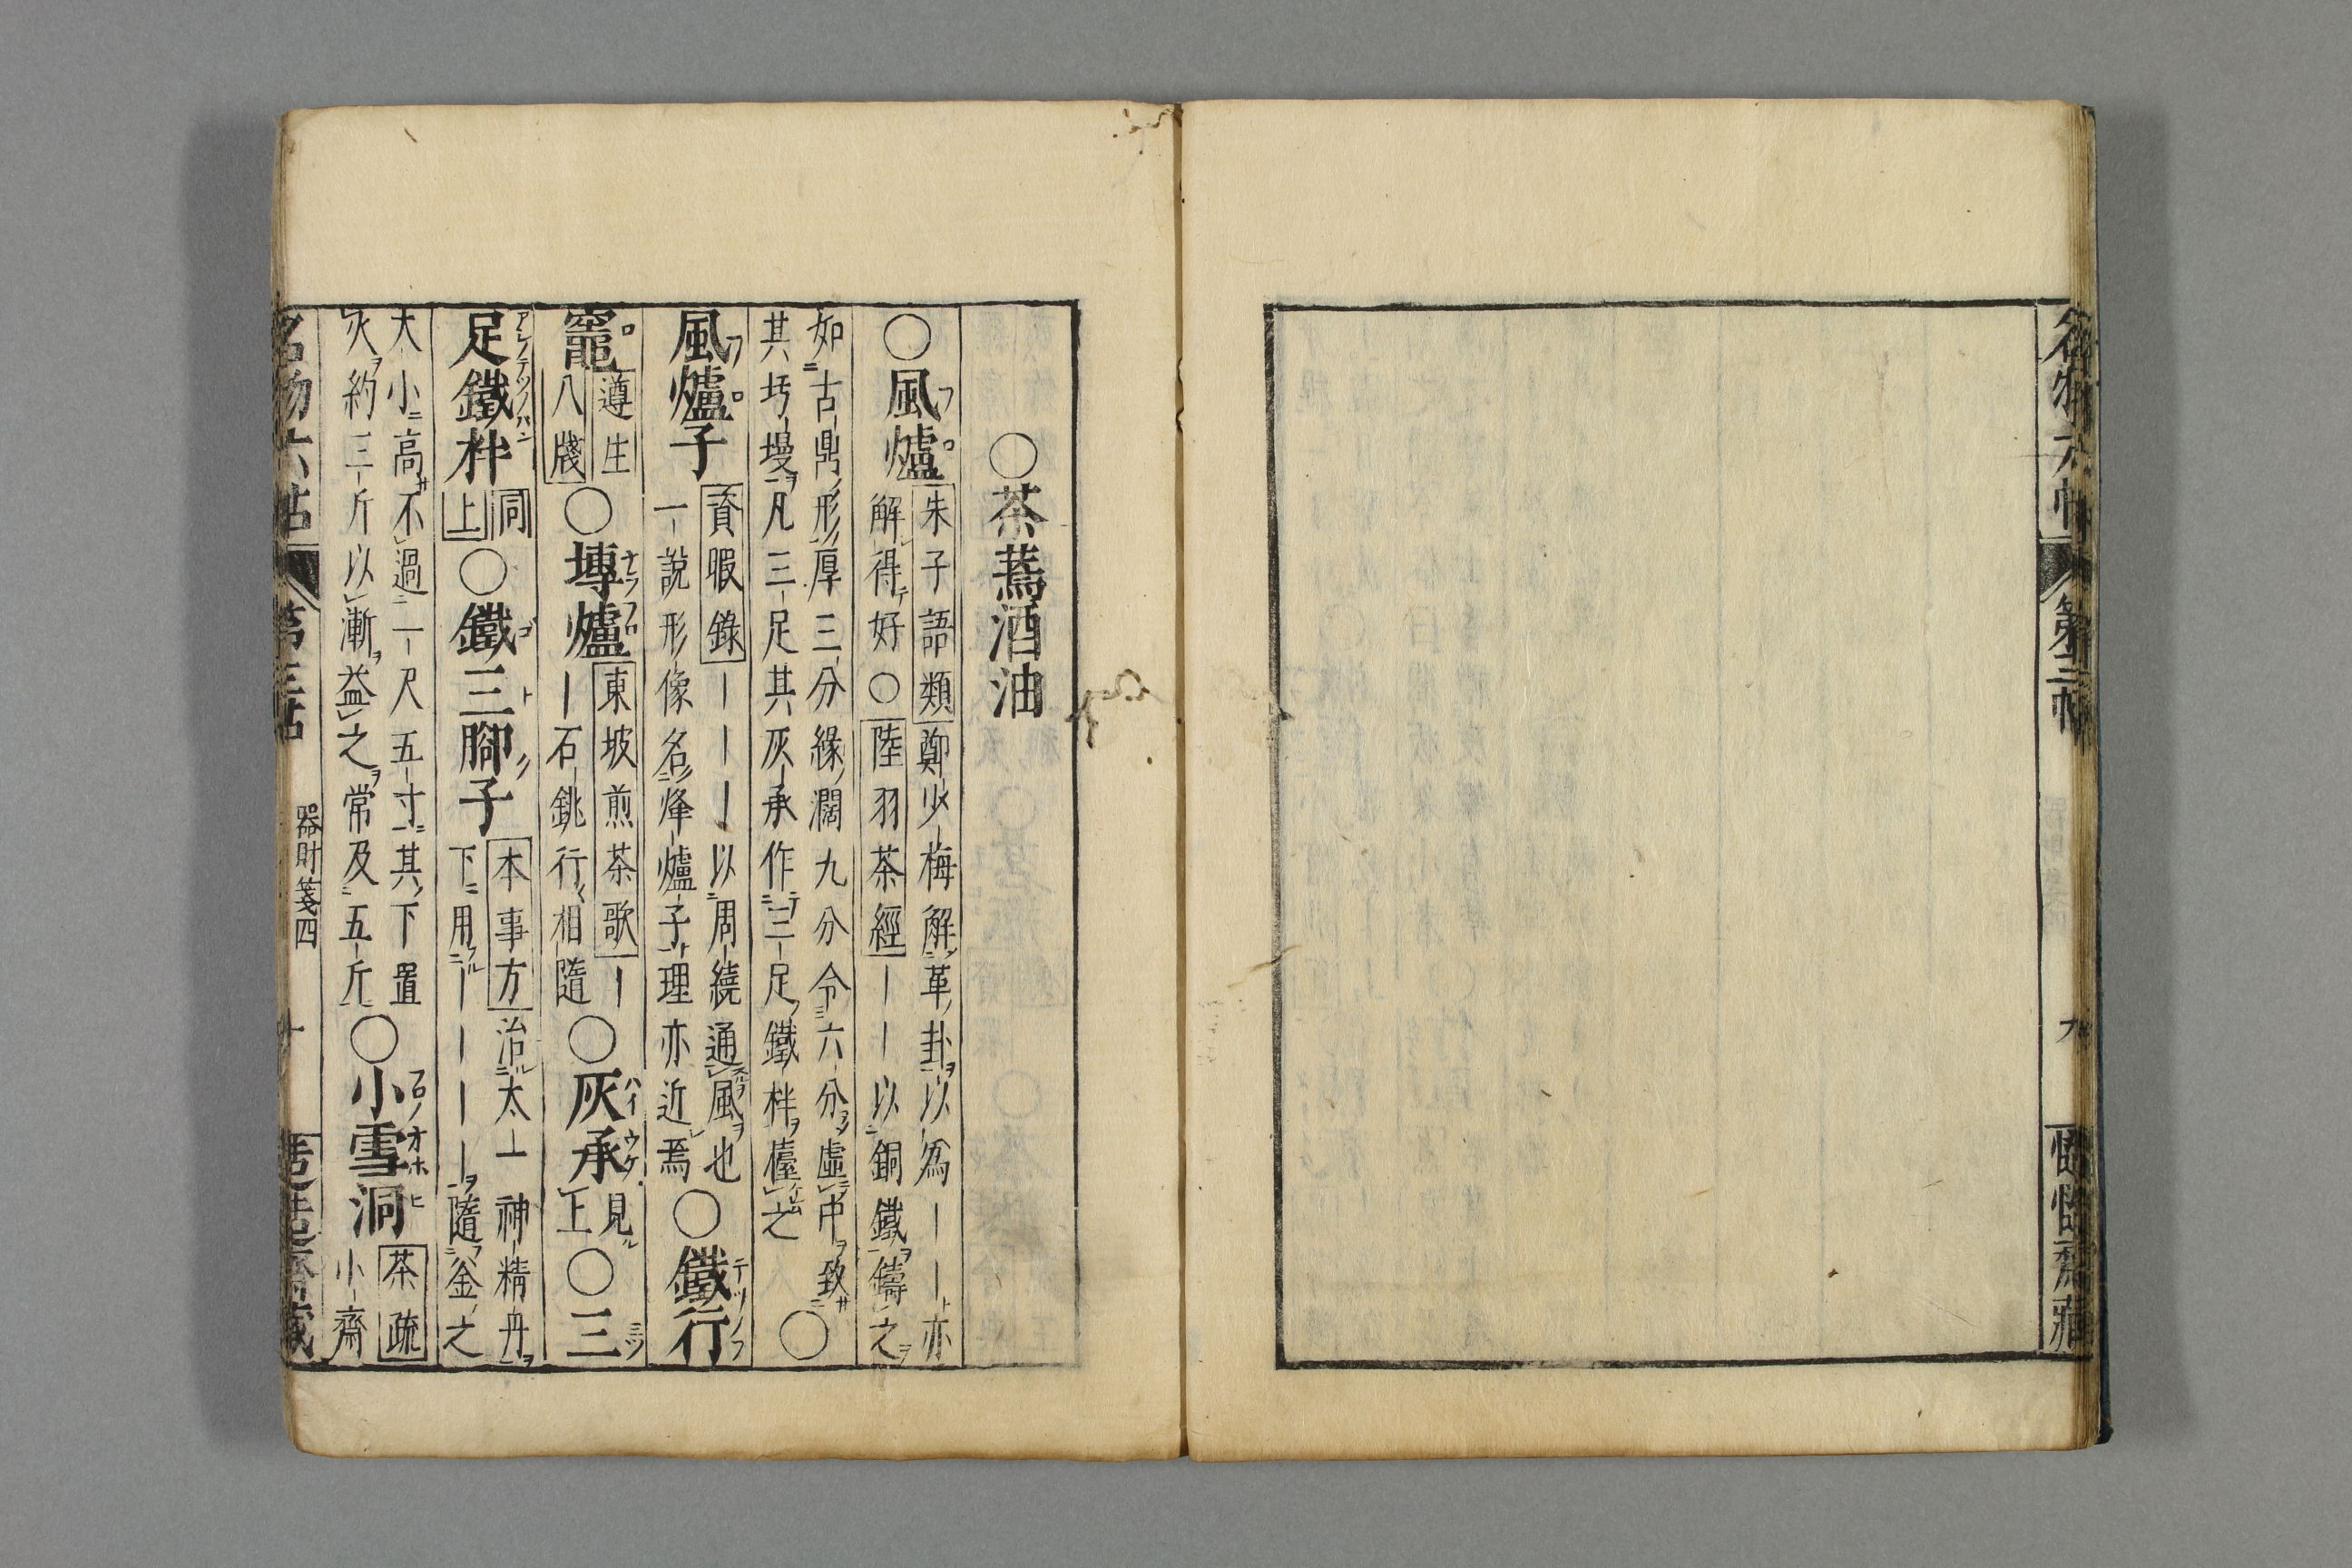 名物六帖 第三帖 九
○茶蔫酒油
○風爐 朱子語類 鄭少梅解革卦以爲丨丨亦
解得好○陸羽茶經丨丨以銅鐵鑄之
如古鼎形厚三分緣濶九分令六分虛中致
其圬墁凡三足其灰承作三足鐵柈檯之 ○
風爐子 資暇錄 丨丨丨以周繞通風也
一說形像名烽爐子理亦近焉 ○鐵行
竈 遵生八牋 ○塼爐 東坡煎茶歌丨
丨石銚行相隨 ○灰承 見上 ○三
足鐵柈 同上 ○鐵三腳子 本事方 治太上神精丹
下用丨丨丨丨隨釜之
大小高不過一尺五寸其下置
火約三斤以漸益之常及五斤 ○小雪洞 茶疏
小齋
名物六帖 第三帖 器財箋四 十